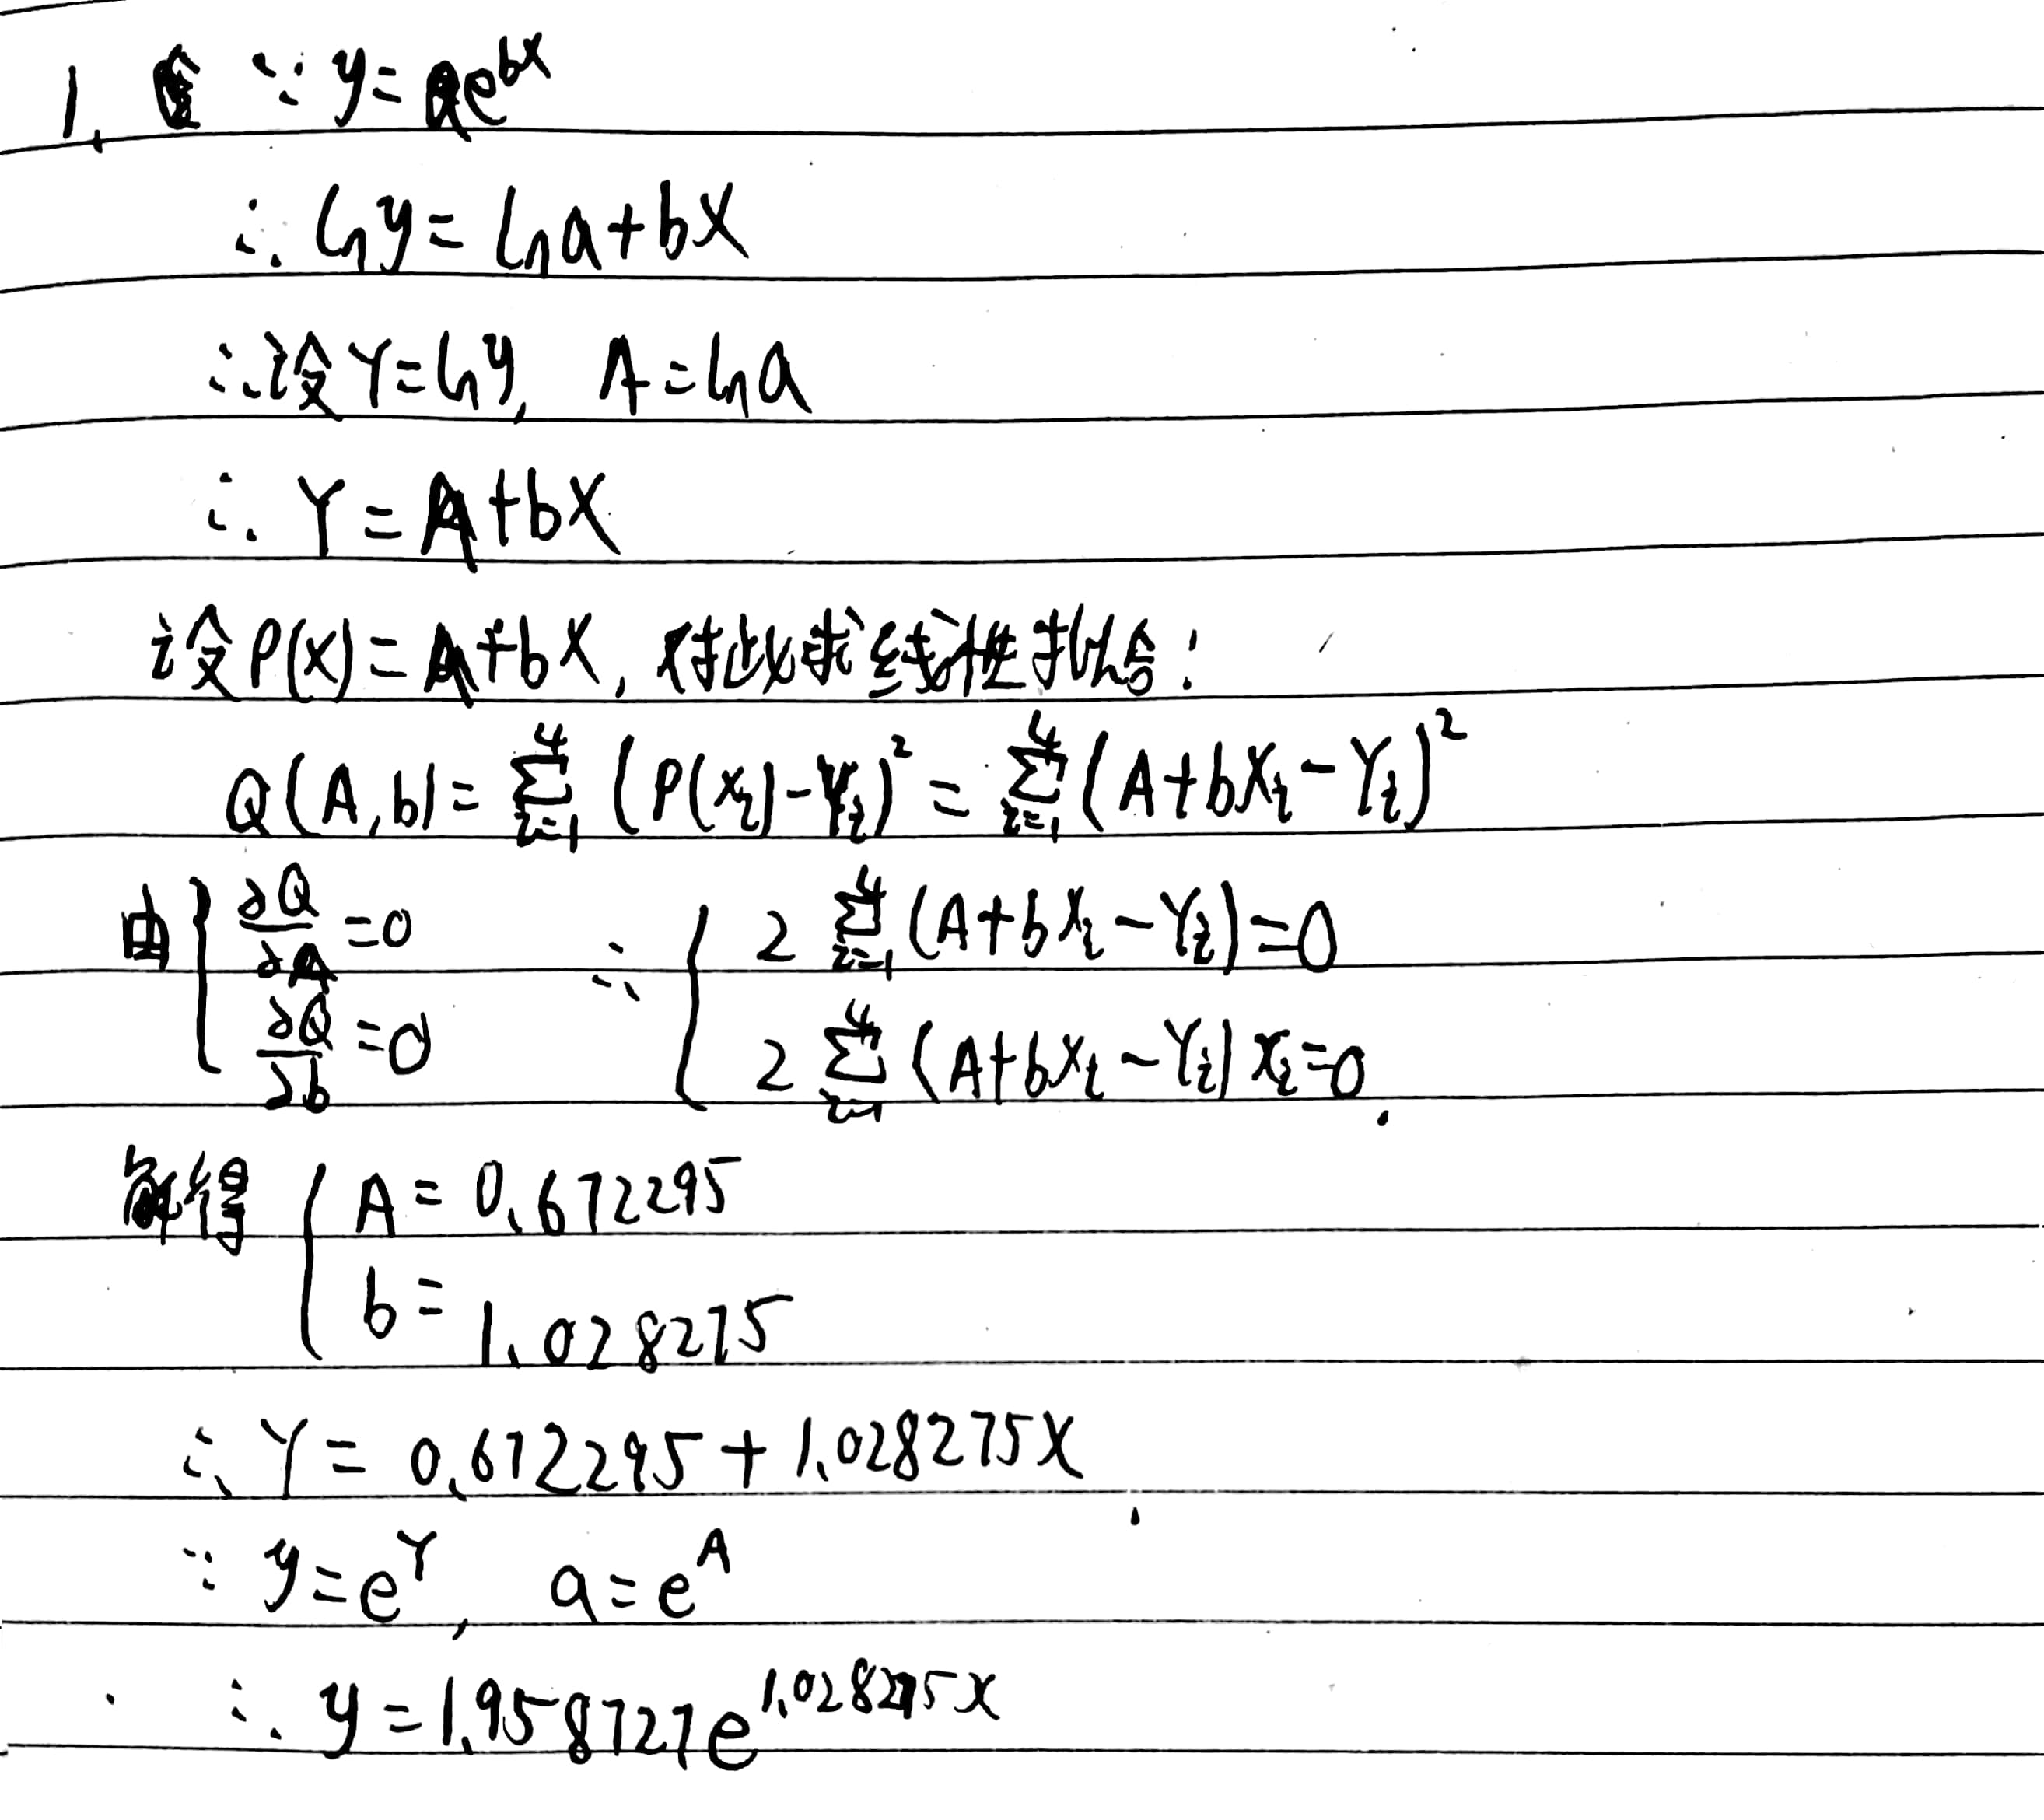 1. ∵ y=ae^{bx}
∴ ln y = ln a+bx
∴设 Y=ln y, A=ln a
∴ Y=A+bx
设 P(x)=A+bx, 对此求线性拟合:
Q(A,b)=\sum_{i=1}^{4} (P(x_i)-Y_i)^2 = \sum_{i=1}^{4} (A+bx_i-Y_i)^2
由 { ∂Q/∂A =0 ∵ { 2 \sum_{i=1}^{4} (A+bx_i-Y_i)=0
∂Q/∂b =0 2 \sum_{i=1}^{4} (A+bx_i-Y_i) x_i=0
解得 { A=0.672295
b=1.028275
∴ Y=0.672295+1.028275x
∵ y=e^Y, a=e^A
∴ y=1.958727e^{1.028275x}